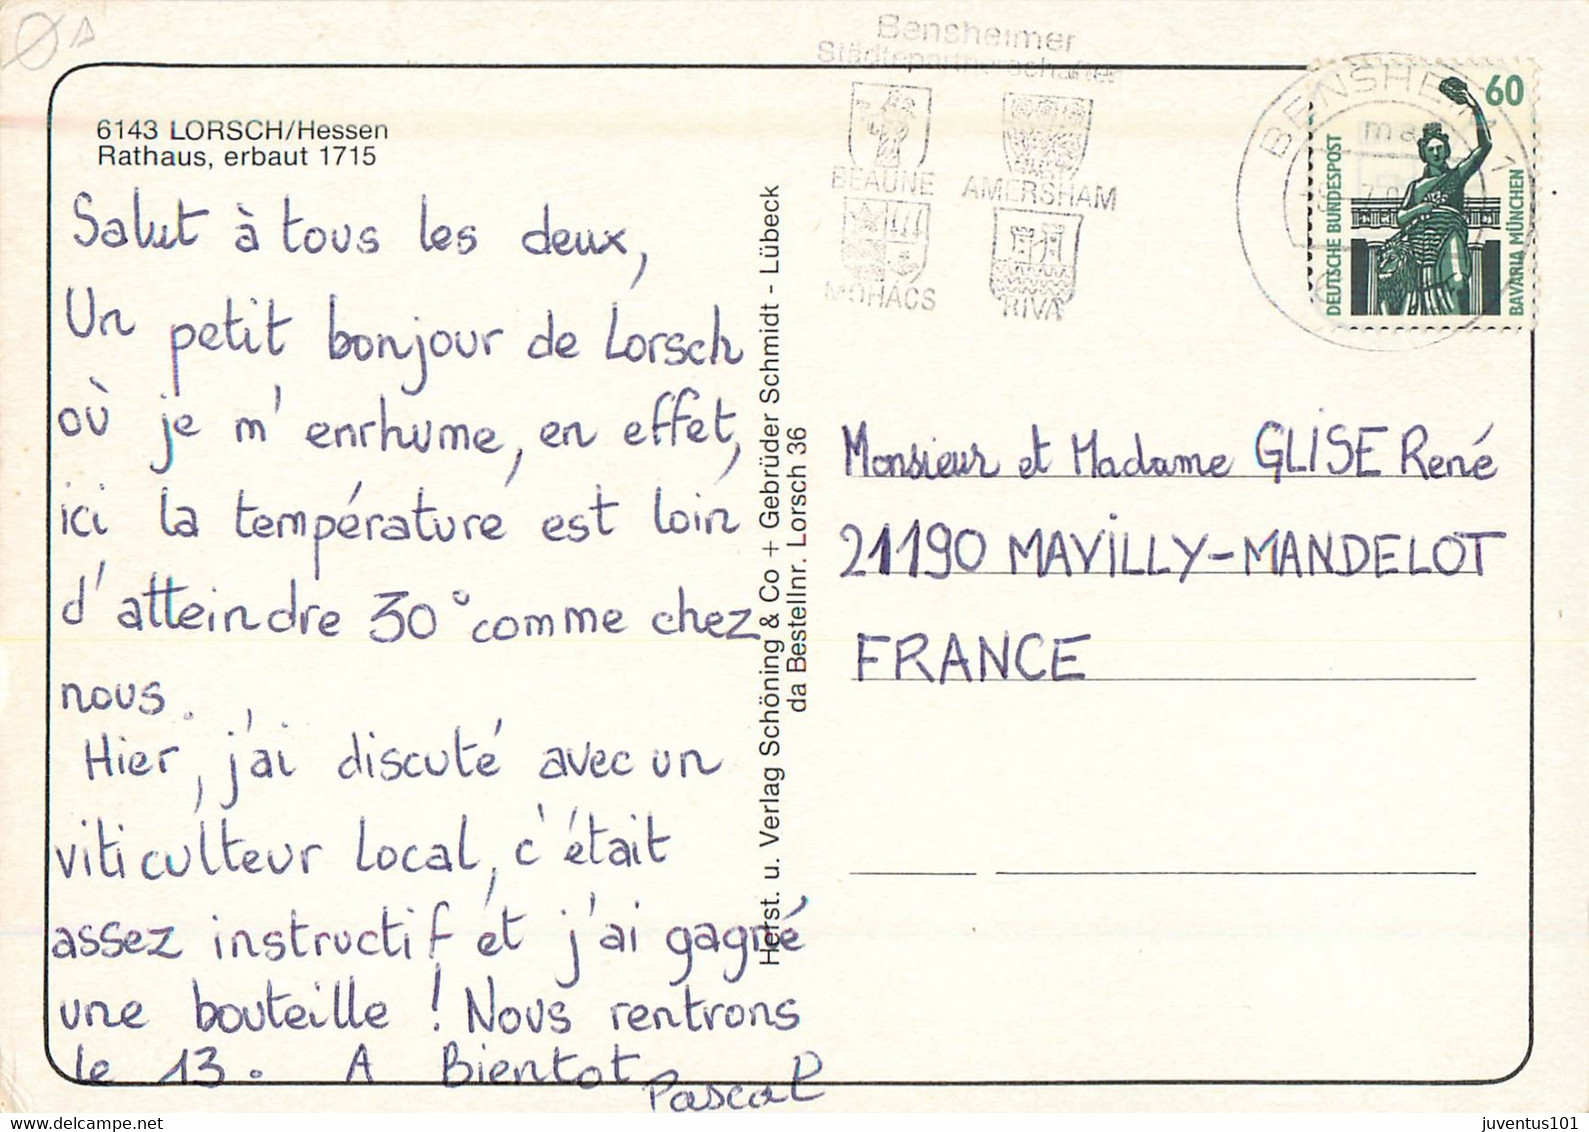 6143 LORSCH/Hessen
Rathaus, erbaut 1715
Salut à tous les deux,
Un petit bonjour de Lorsch
où je m'enrhume, en effet,
ici la température est loin
d'atteindre 30° comme chez
nous.
Hier, j'ai discuté avec un
viticulteur local, c'était
assez instructif et j'ai gagné
une bouteille ! Nous rentrons
le 13. A Bientot
Pascal
Herst. u. Verlag Schöning & Co + Gebrüder Schmidt - Lübeck
da Bestellnr. Lorsch 36
Bensheimer
Städtepartnerschaften
BEAUNE AMERSHAM
MOHÁCS RIVA
BENSHEIM 1
60
DEUTSCHE BUNDESPOST
BAVARIA MÜNCHEN
Monsieur et Madame GLISE René
21190 MAVILLY-MANDELOT
FRANCE
delcampe.net
juventus101